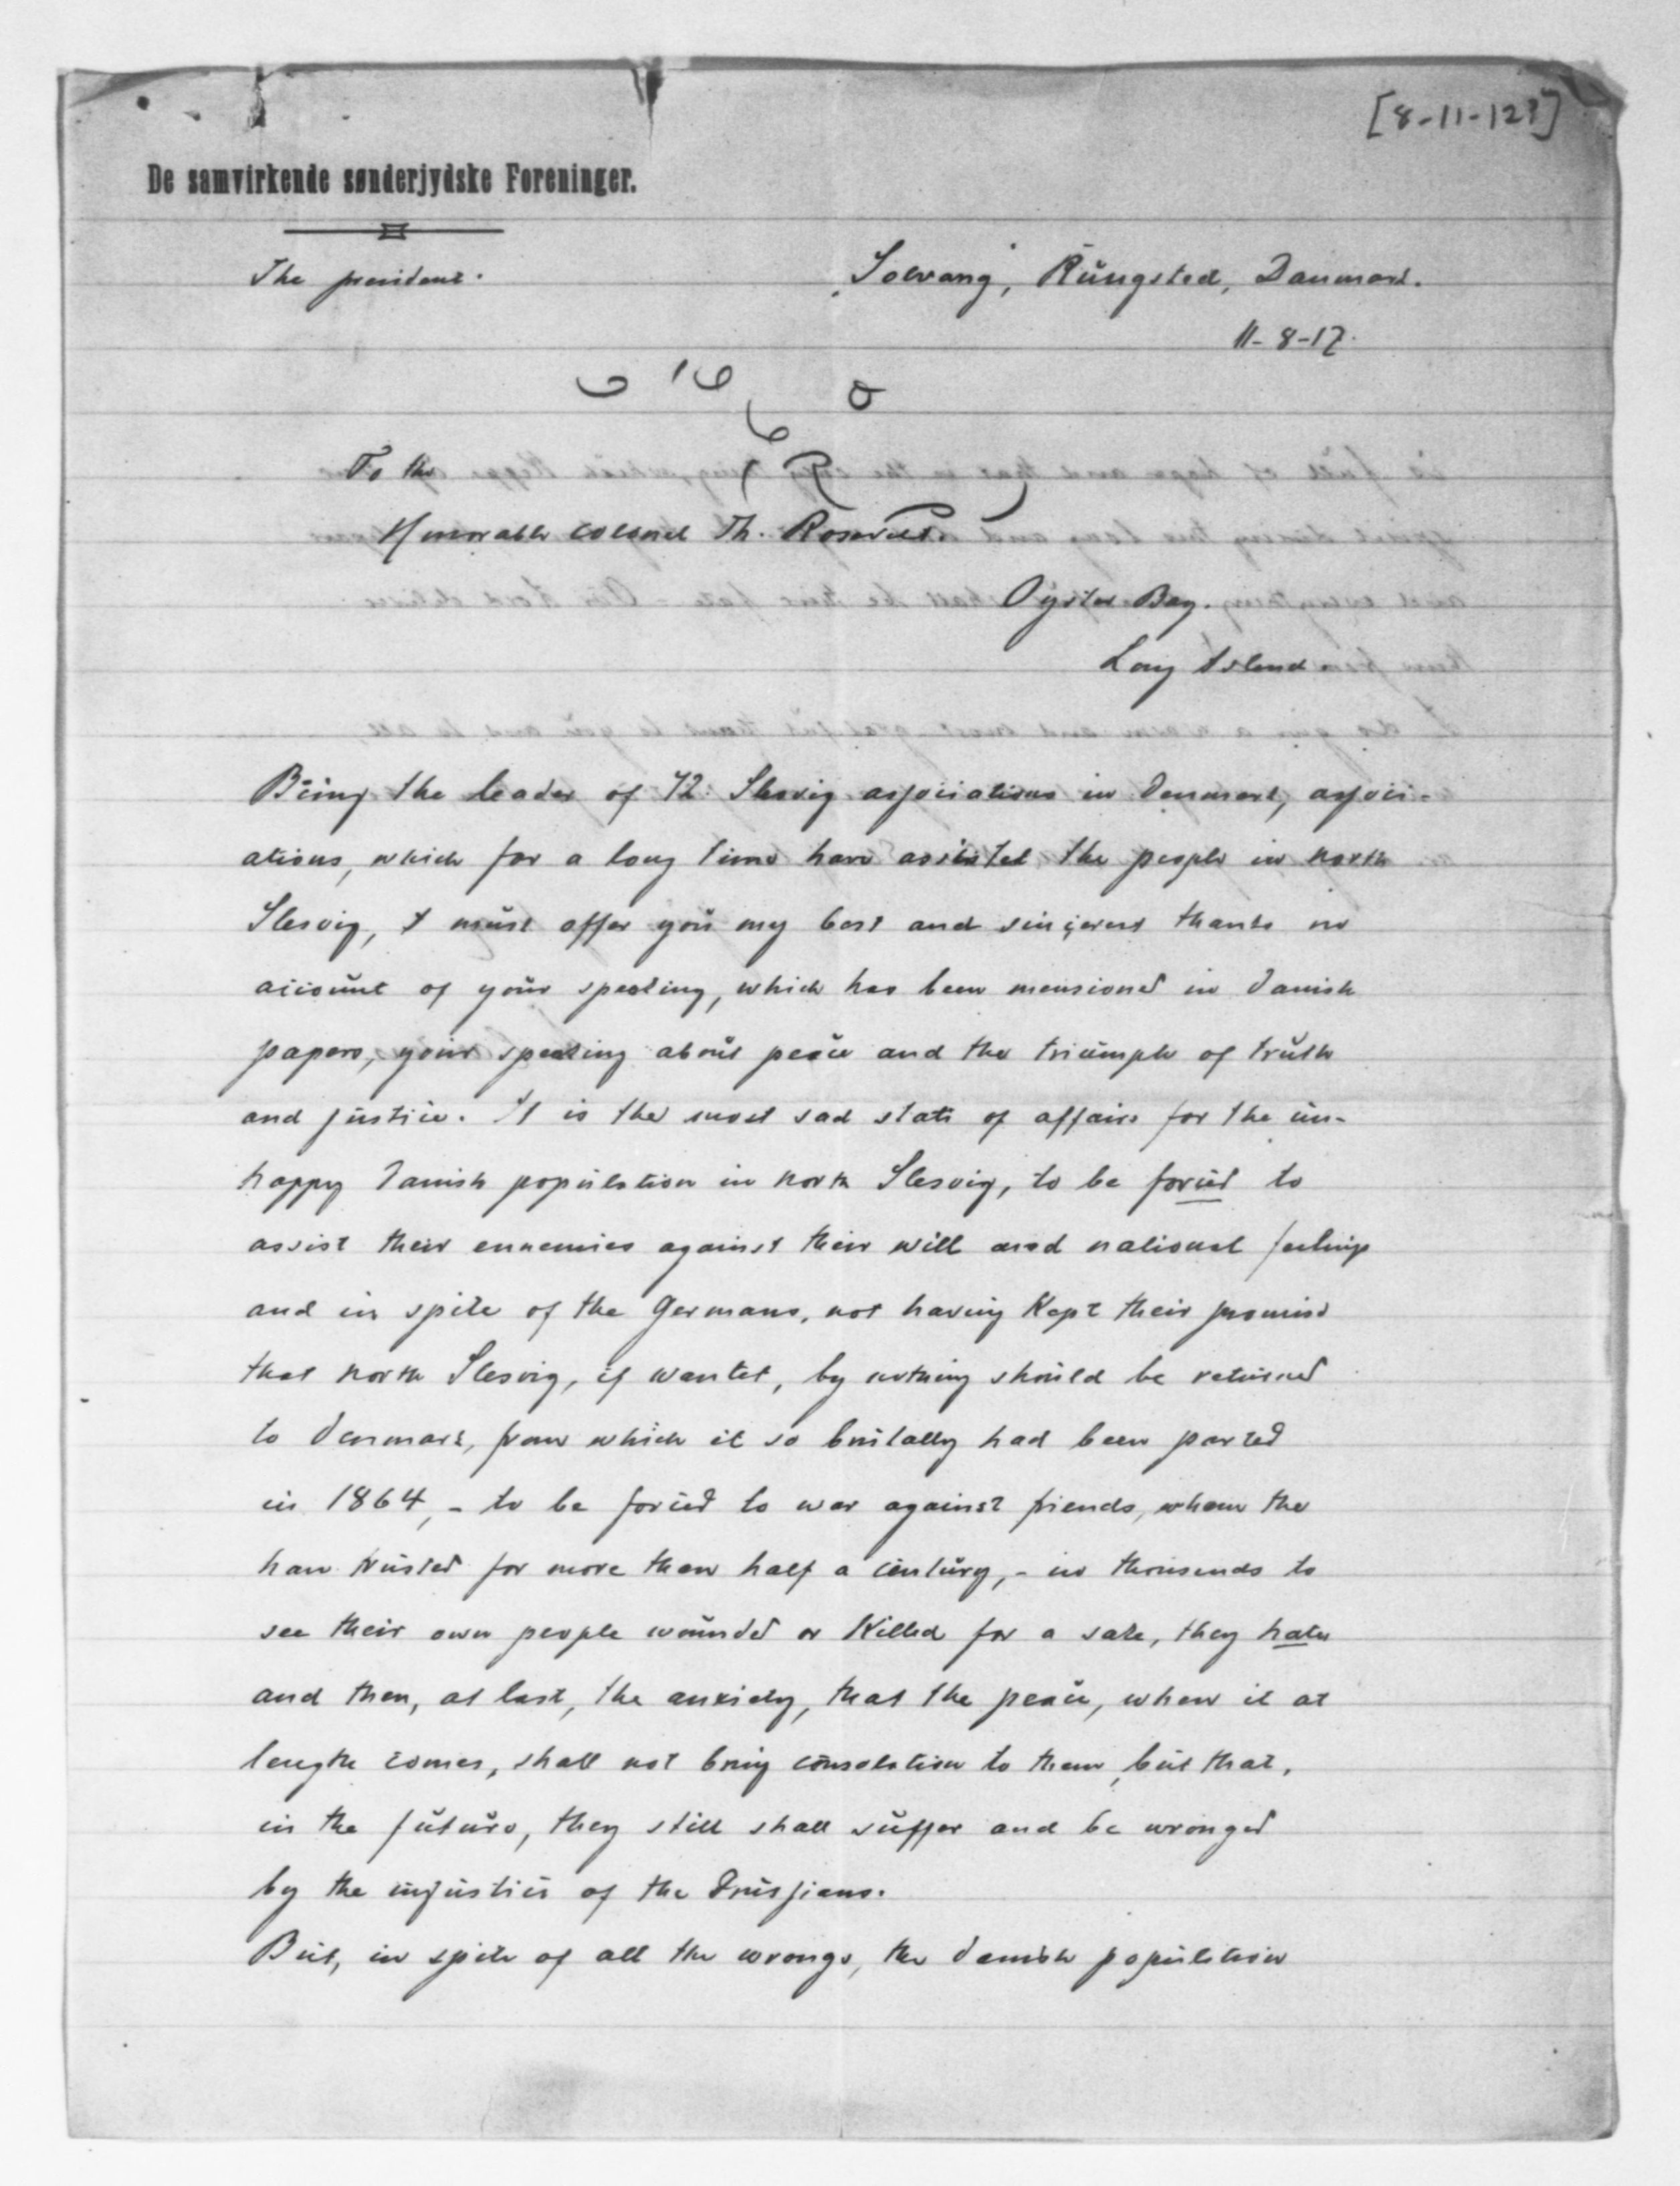 [8-11-12?]
De samvirkende sønderjydske Foreninger.
The president.
"Solvang", Rungsted, Danmark.
11-8-17.
To the
Honorable colonel Th. Rosevelt.
Oyster Bay.
Long Island.
Being the leader of 72 Slesvig associations in Denmark, associ-
ations, which for a long time have assistet the people in north
Slesvig, I must offer you my best and sincerest thanks on
account of your speaking, which has been mensioned in Danish
papers, your speaking about peace and the triumph of truth
and justice. It is the most sad state of affairs for the un-
happy Danish population in north Slesvig, to be forced to
assist their ennemies against their will and national feelings
and in spite of the Germans, not having kept their promise
that north Slesvig, if wantet, by voting should be returned
to Denmark, from which it so brutally had been parted
in 1864, - to be forced to war against friends, whom the
have trusted for more than half a century, - in thousends to
see their own people wounded or killed for a sake, they hate
and then, at last, the anxiety, that the peace, when it at
length comes, shall not bring consolation to them, but that,
in the future, they still shall suffer and be wronged
by the injustice of the Prussians.
But, in spite of all the wrongs, the Danish population